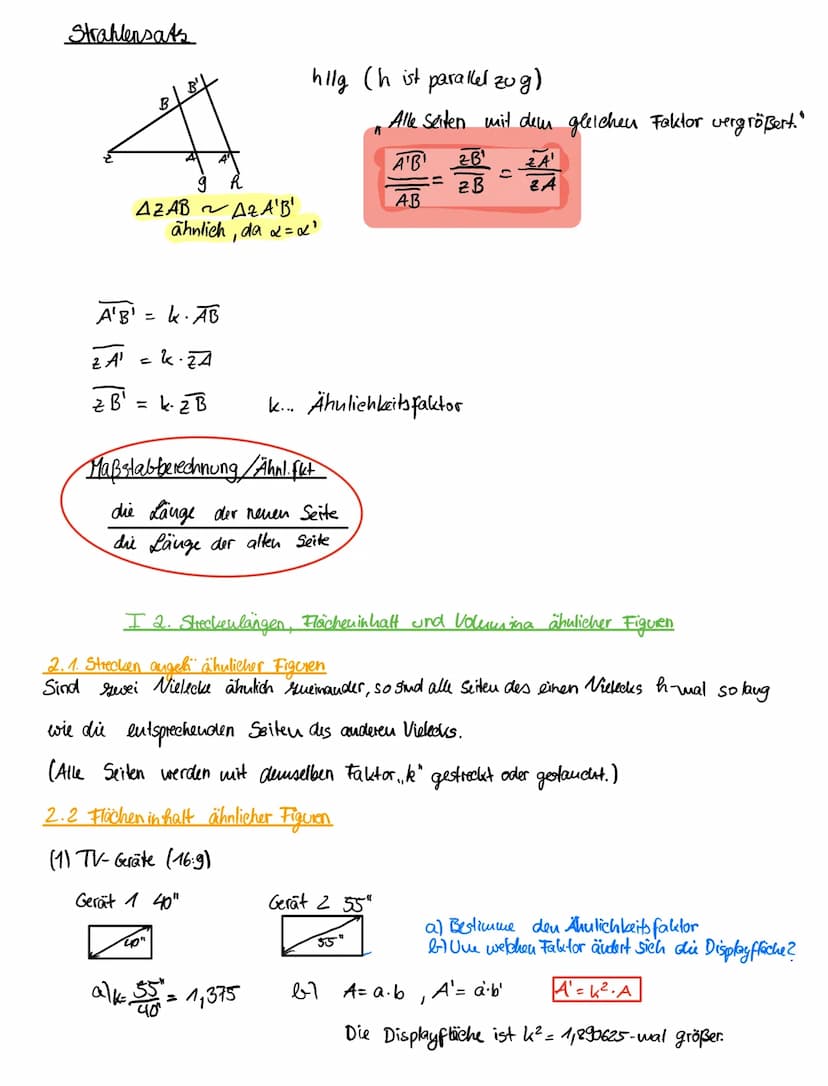 Strahlensatz
h||g (h ist parallel zu g)
„Alle Seiten mit dem gleichen Faktor vergrößert."
A'B'/AB = ZB'/ZB = ZA'/ZA
B B'
Z A A'
g h
ΔZAB ~ ΔZA'B'
ähnlich, da α = α'
A'B' = k · AB
ZA' = k · ZA
ZB' = k · ZB k... Ähnlichkeitsfaktor
Maßstabberechnung/Ähnl.fkt
die Länge der neuen Seite
die Länge der alten Seite
I 2. Streckenlängen, Flächeninhalt und Volumina ähnlicher Figuren
2.1. Strecken ähnlicher Figuren
Sind zwei Vielecke ähnlich zueinander, so sind alle Seiten des einen Vielecks k-mal so lang
wie die entsprechenden Seiten des anderen Vielecks.
(Alle Seiten werden mit demselben Faktor „k" gestreckt oder gestaucht.)
2.2 Flächeninhalt ähnlicher Figuren
(1) TV-Geräte (16:9)
Gerät 1 40" Gerät 2 55"
40" 55"
a) Bestimme den Ähnlichkeitsfaktor
b) Um welchen Faktor ändert sich die Displayfläche?
a) k = 55"/40" = 1,375 b) A = a·b , A' = a'·b' A' = k² · A
Die Displayfläche ist k² = 1,890625-mal größer.